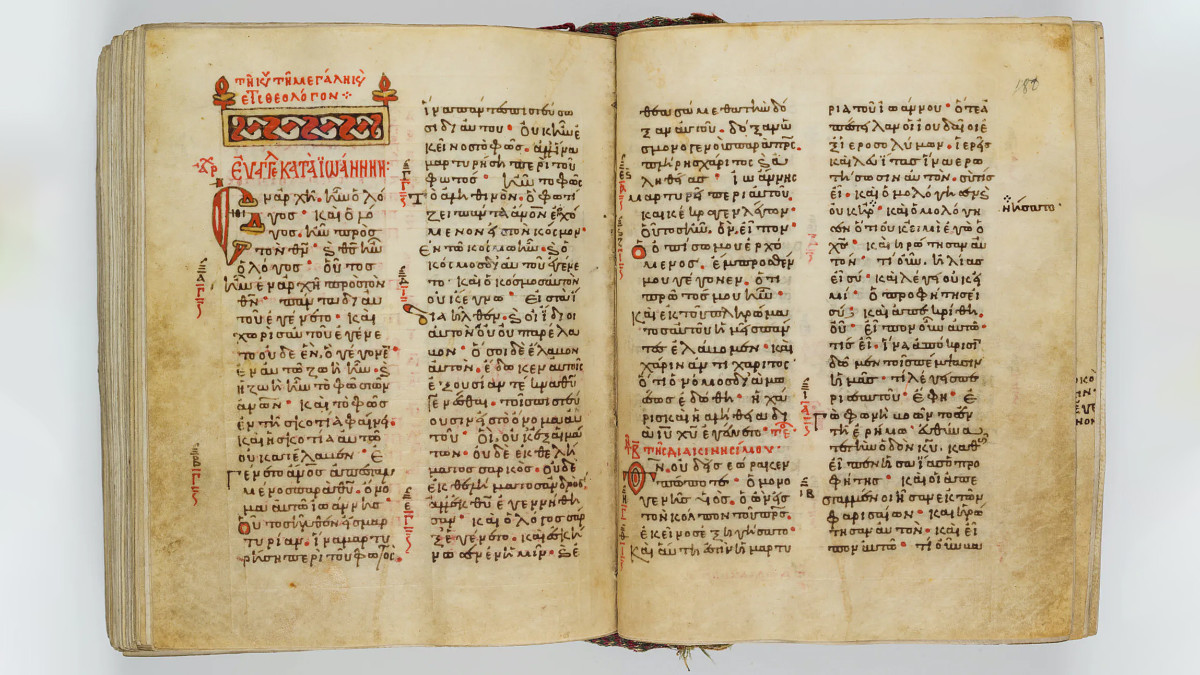 τῆ κυ τῆ μεγάλη κυ
ἐπὶ θεολόγον
ἀρ
ἐυαγγε κατὰ ἰωάννην:
Εν ἀρχῆ ἦν ὁ λό
γος· καὶ ὁ λό
γος ἦν προς
τὸν θν· ς θς ἦν
ὁ λόγος· οὗτος
ἦν ἐν ἀρχῆ προς τὸν
θν· πάντα δι αυ
τοῦ ἐγένετο· καὶ
χωρὶς αυτοῦ ἐγένε
το οὐδε ἕν, ὃ γέγονεν·
ἐν αυτῶ ζωὴ ἦν· ς
ἡ ζωὴ ἦν τὸ φῶς τῶν
ἀνων· καὶ τὸ φῶς
ἐν τῆ σκοτία φαίνει·
καὶ ἡ σκοτία αυτὸ
οὐ κατέλαβεν· Ε
γένετο ἄνος ἀπεσταλ
μένος παρὰ θυ· ὄνο
μα αυτῶ ἰωάννης·
Οὗτος ἦλθεν εἰς μαρ
τυρίαν· ἵνα μαρτυ
ρήση περὶ τοῦ φωτός·
ἵνα πάντες πιστεύσω
σι δι αυτου· Οὐκ ἦν ἐ
κεῖνος τὸ φῶς· ἀλλ ἵνα
μαρτυρήση περὶ τοῦ
φωτός· ἦν τὸ φῶς
τὸ ἀληθινὸν· ὃ φωτί
ζει πάντα ἄνον ἐρχό
μενον εἰς τὸν κόσμον·
Εν τῶ κόσμω ἦν· ς ὁ
κόσμος δι αυτοῦ ἐγένε
το· καὶ ὁ κόσμος αυτὸν
οὐκ ἔγνω· Εἰς τὰ ἴ
δια ἦλθεν· ς οἱ ἴδιοι
αυτὸν οὐ παρέλα
βον· ὅσοι δὲ ἔλαβον
αυτὸν· ἔδωκεν αυτοῖς
ἐξουσίαν τέκνα θυ
γενέσθαι· τοῖς πιστεύ
ουσιν εἰς τὸ ὄνομα αυ
τοῦ· Οἳ, οὐκ ἐξ αἱμά
των· οὐδὲ ἐκ θελή
ματος σαρκὸς· οὐδὲ
ἐκ θελήματος ἀνδρὸς·
ἀλλ ἐκ θυ ἐγεννήθη
σαν· καὶ ὁ λόγος σὰρ
ξ ἐγένετο· καὶ ἐσκή
νωσεν ἐν ἡμῖν· ς ἐ
θεασάμεθα τὴν δό
ξαν αυτοῦ· δόξαν ὡ
ς μονογενοῦς παρὰ πρς·
πλήρης χάριτος ς ἀ
ληθείας· ἰωάννης
μαρτυρεῖ περὶ αυτοῦ·
καὶ κέκραγε λέγων·
Οὗτος ἦν, ὃν εἶπον·
Ὁ ὀπίσω μου ἐρχό
μενος, ἔμπροσθέν
μου γέγονεν· ὅτι
πρῶτός μου ἦν·
Καὶ ἐκ τοῦ πληρώμα
τος αυτοῦ ἡμεῖς πάν
τες ἐλάβομεν· καὶ
χάριν ἀντὶ χάριτος·
ὅτι ὁ νόμος διὰ μω
σέως ἐδόθη· ἡ χά
ρις καὶ ἡ ἀλήθεια δι
ὰ ιυ χυ ἐγένετο· τελ
τῆ β τῆς διακινησίμου·
Θν οὐδεὶς ἑώρακεν
πώποτε· ὁ μονο
γενὴς υἱὸς, ὁ ὢν εἰς
τὸν κόλπον τοῦ πρς·
ἐκεῖνος ἐξηγήσατο·
Καὶ αὕτη ἐστὶν ἡ μαρτυ
180
ρία τοῦ ἰωάννου· ὅτε ἀ
πέστειλαν οἱ ἰουδαῖοι ἐ
ξ ἱεροσολύμων· ἱερεῖς
καὶ λευίτας ἵνα ἐρω
τήσωσιν αυτὸν· σὺ τίς
εἶ· καὶ ὡμολόγησεν ς
οὐκ ἠρ· καὶ ὡμολόγη
σεν ὅτι οὐκ εἰμὶ ἐγὼ ὁ
χς· καὶ ἠρώτησαν αυ
τὸν· τί οὖν, ἡλίας
εἶ σύ· καὶ λέγει οὐκ εἰ
μί· Ὁ προφήτης εἶ
σύ· καὶ ἀπεκρίθη,
οὔ· εἶπον οὖν αυτῶ·
τίς εἶ· ἵνα ἀπόκρισιν
δῶμεν τοῖς πέμψασιν
ἡμᾶς· τί λέγεις πε
ρὶ σεαυτοῦ· Εφη· Ε
γὼ φωνὴ βοῶντος ἐν
τῆ ἐρήμω· εὐθύνα
τε τὴν ὁδὸν κυ, καθὼς
εἶπεν ἡσαΐας ὁ προ
φήτης· καὶ οἱ ἀπε
σταλμένοι ἦσαν ἐκ τῶν
φαρισαίων· καὶ ἠρώ
τησαν αυτὸν· καὶ εἶ
πον αυτῶ· τί οὖν βα
νήσατο·